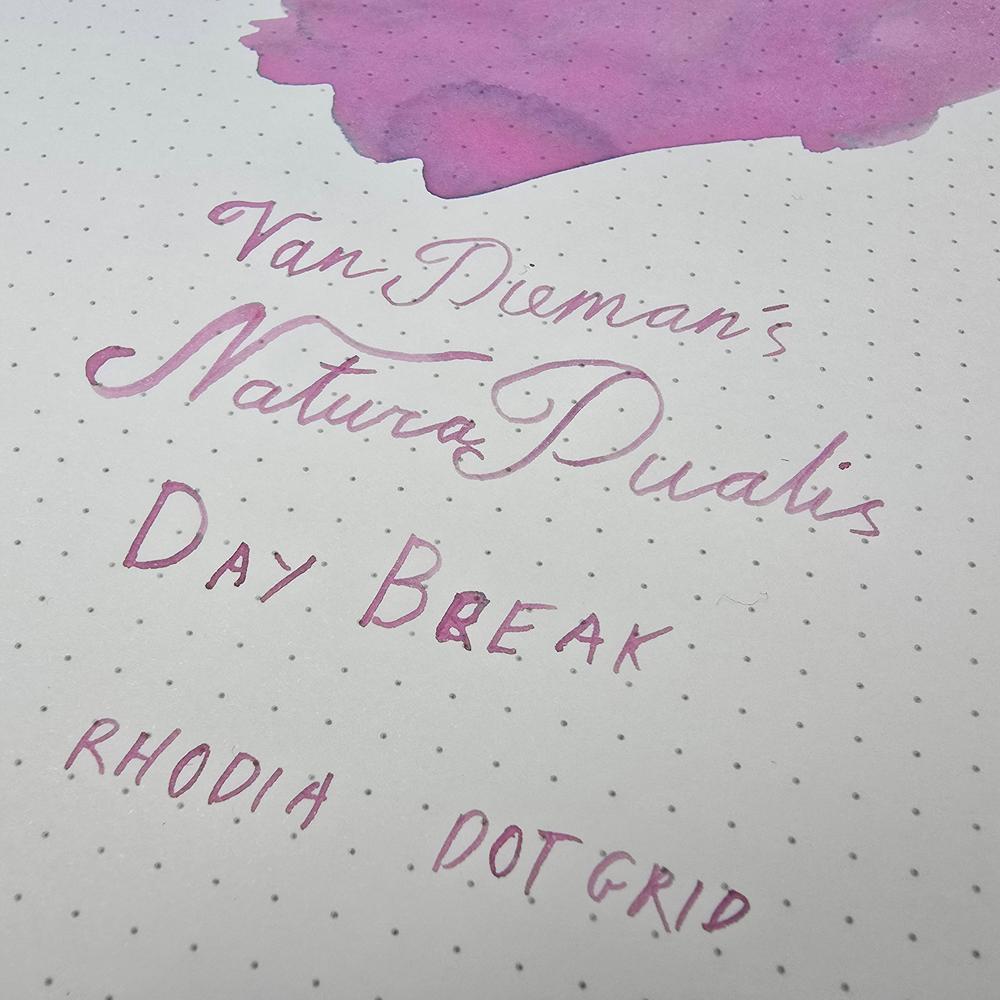 Van Dieman's
Natura Dualis
DAY BREAK
RHODIA DOT GRID